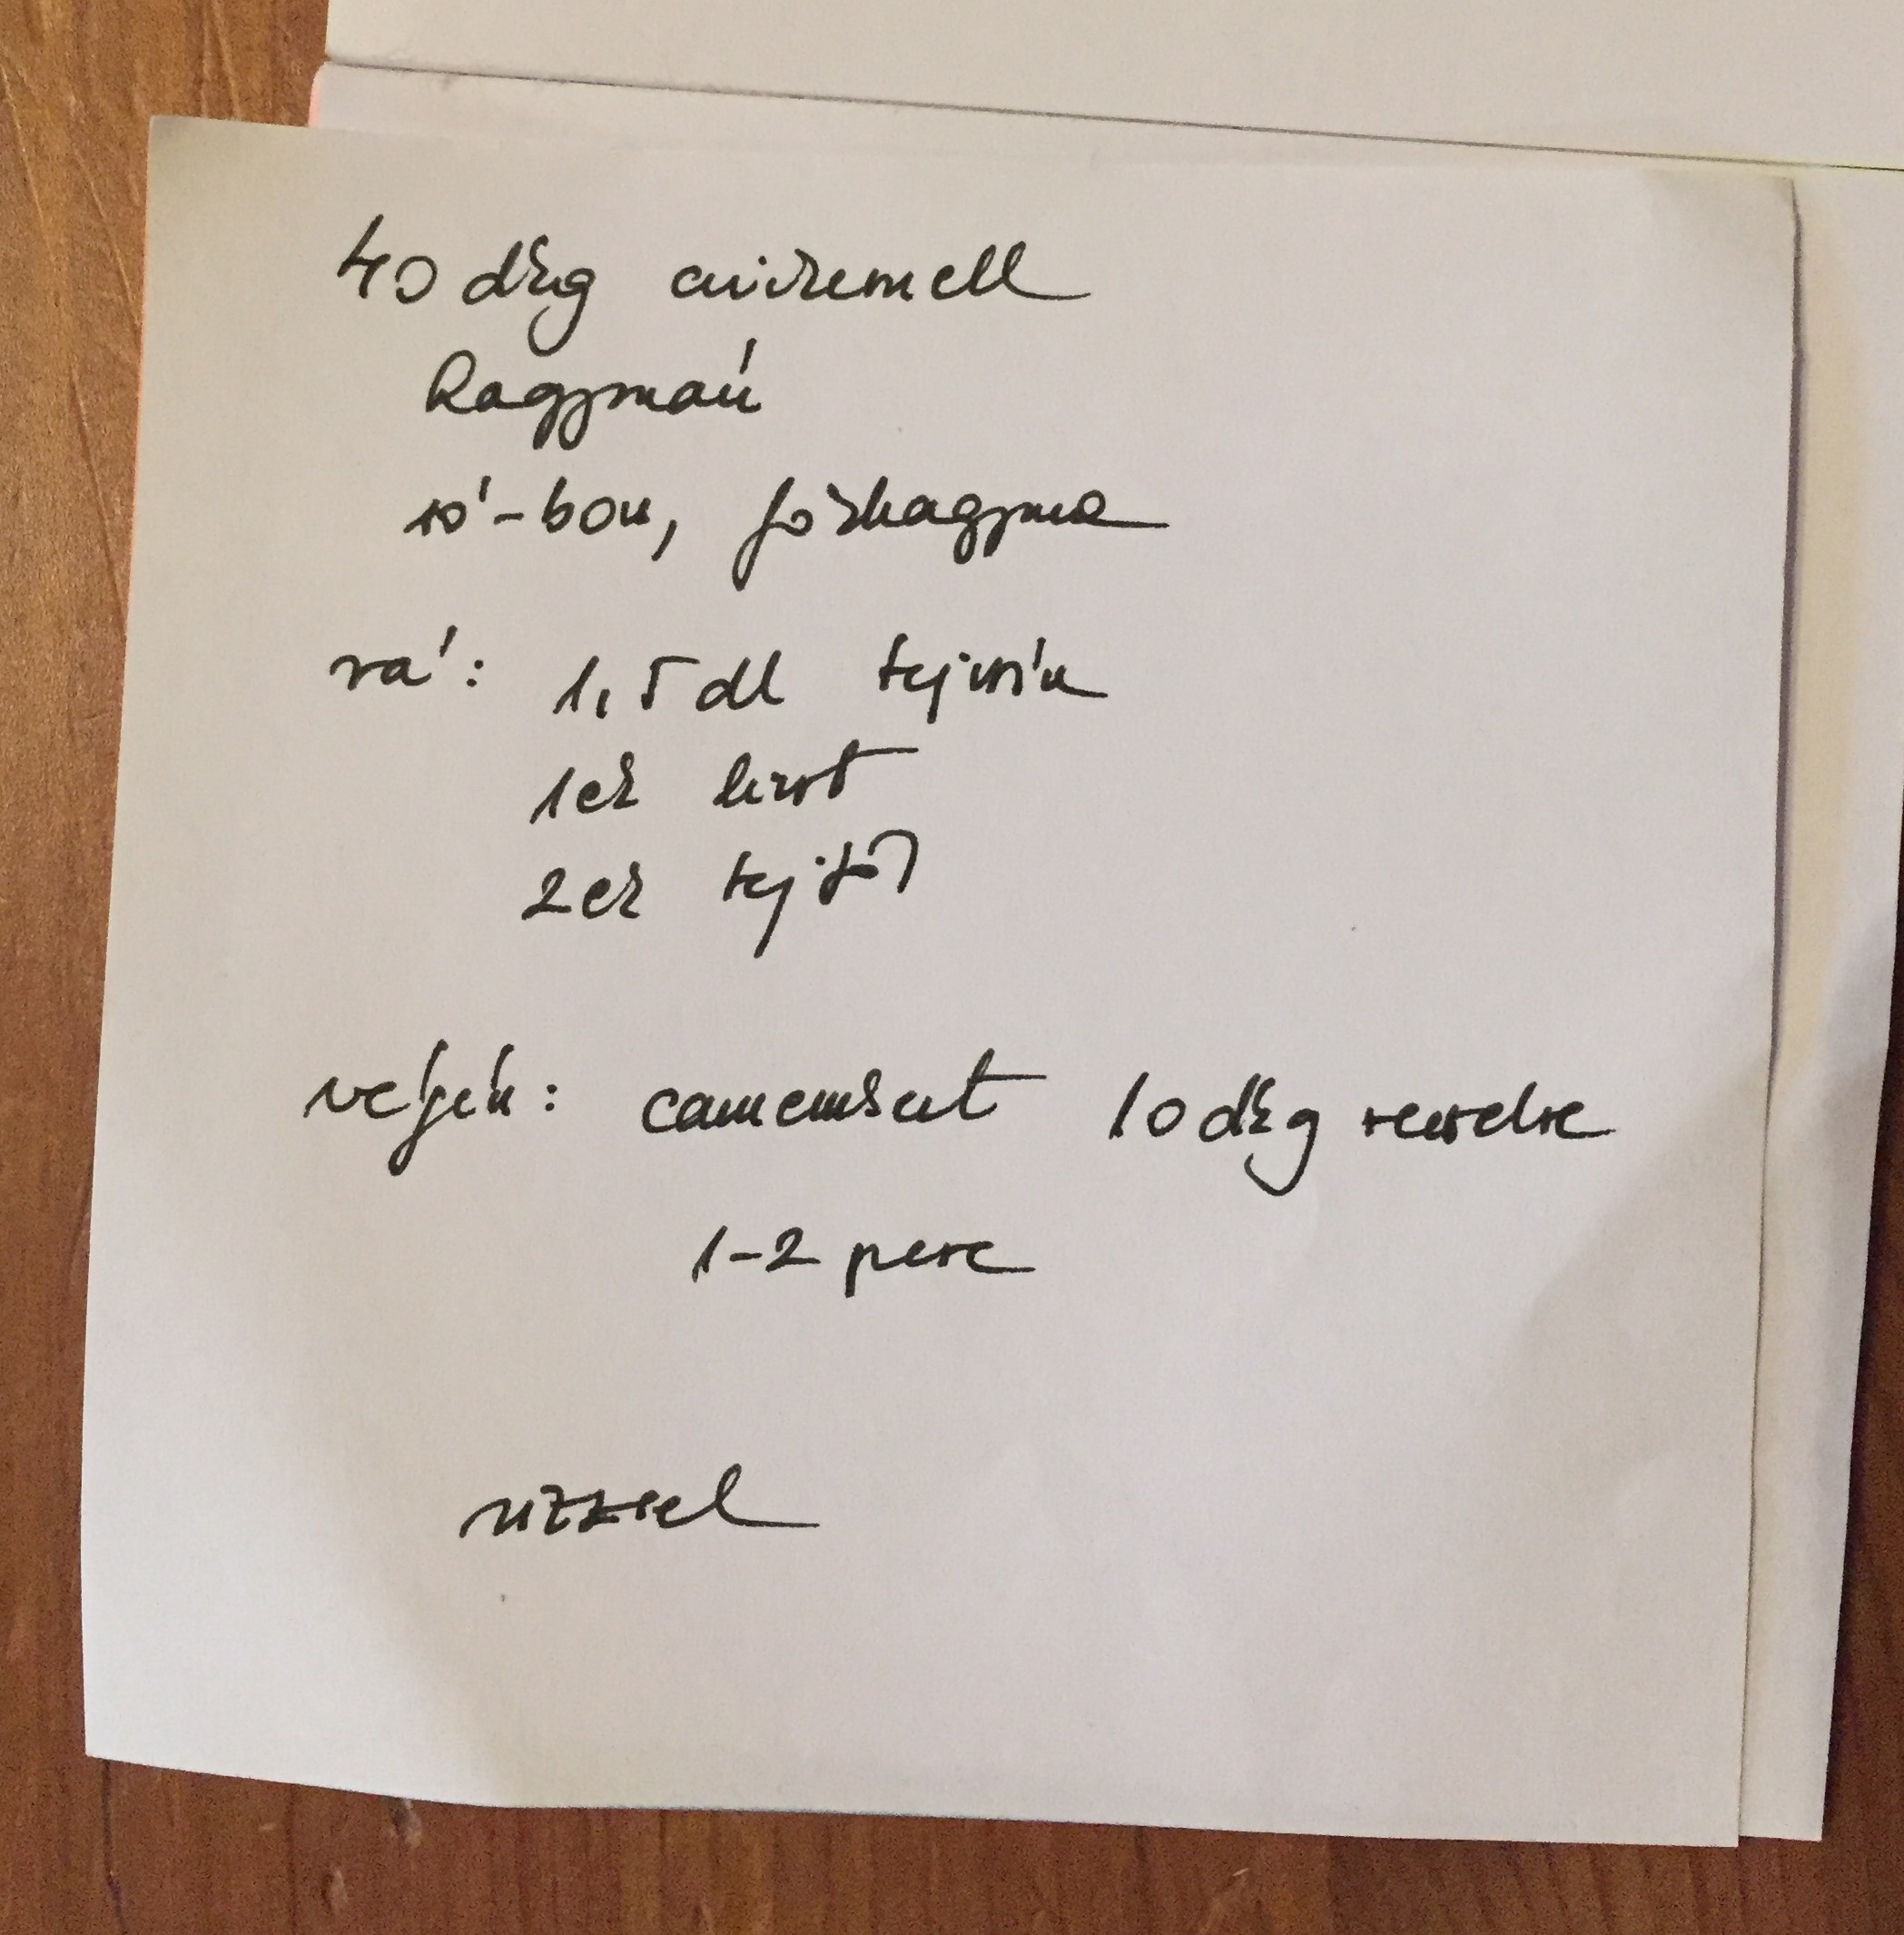 40 dkg csirkemell
hagymán
só-bors, fokhagyma
rá: 1,5 dl tejszín
1ek liszt
2ek tejföl
végén: camembert 10 dkg reszelve
1-2 perc
rizzsel